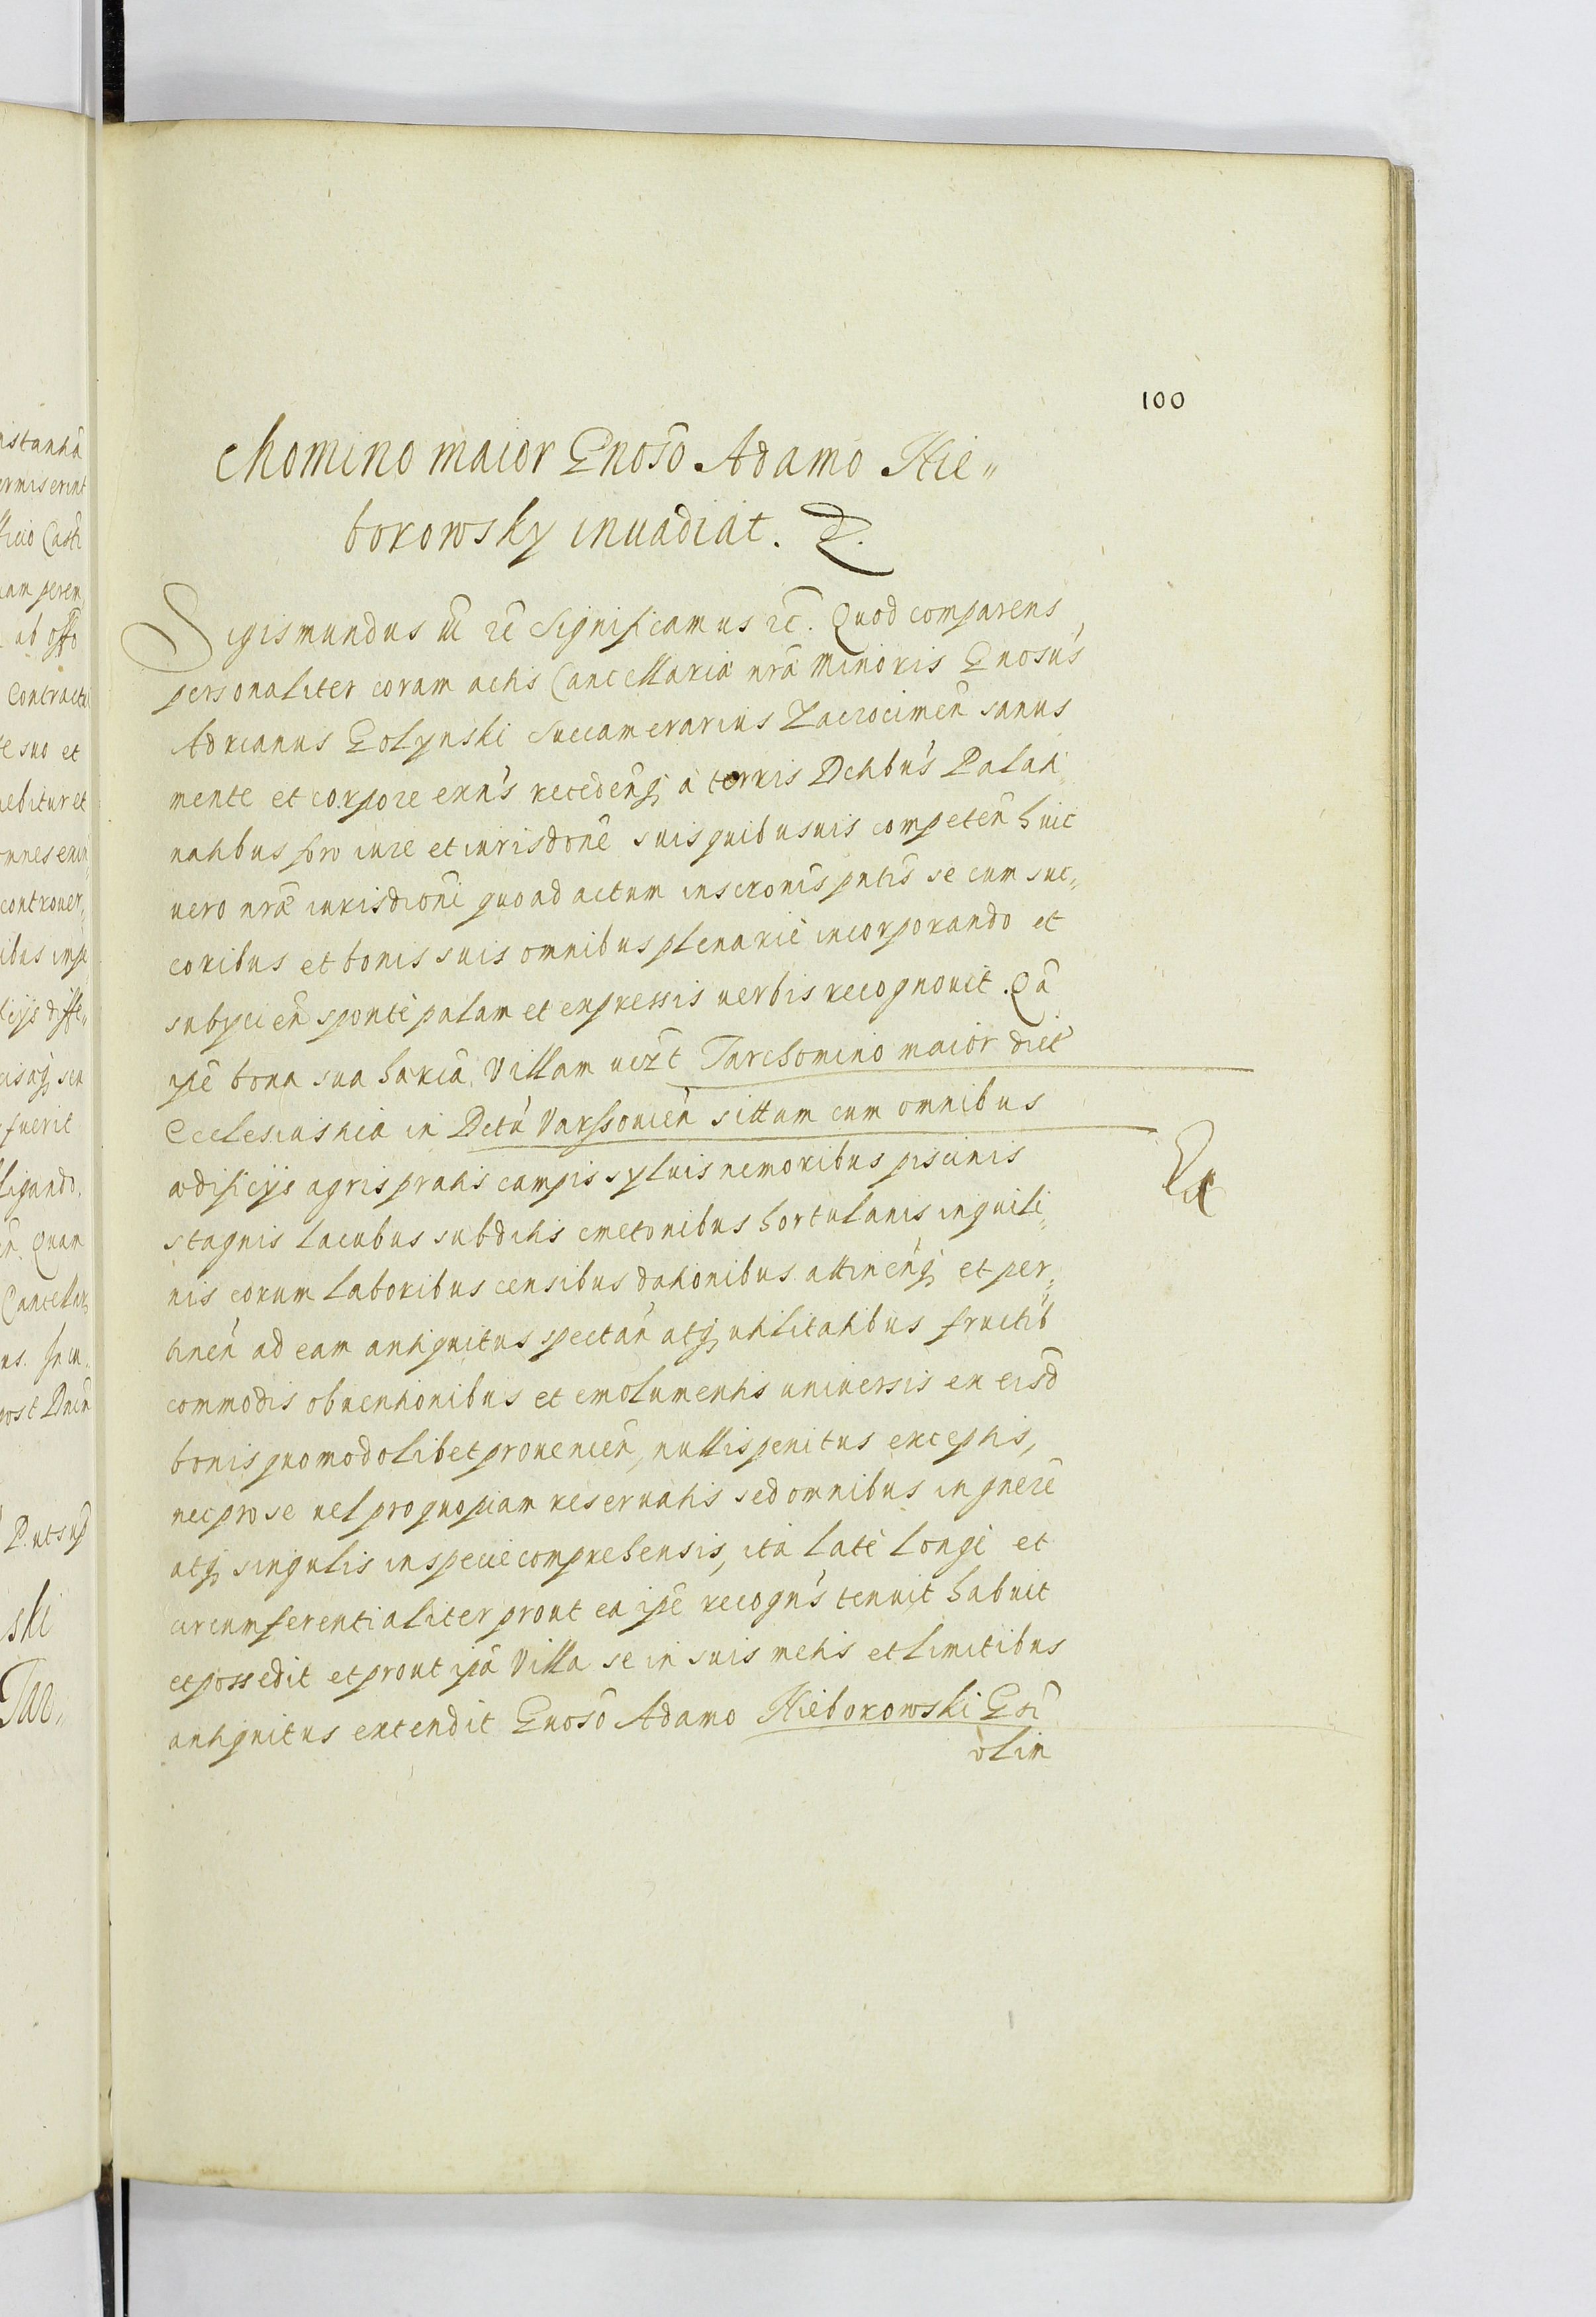 100
chomino maior Gnoso Adamo Nie„
borowsky inuadiat. D.
Sigismundus III rc Significamus rc. Quod comparens
personaliter coram actis Cancellariæ nrae Minoris Gnosus
Adrianus Golynski Succamerarius Zacrocimen sanus
mente et corpore exns recedenq a terris Dctibus Palati
natibus foro iure et iurisdone suis quibusuis competen huic
uero nrae iurisdioni quoad actum inscronis pntis se cum suc„
coribus et bonis suis omnibus plenarie incorporando et
subycien sponte palam et expressis uerbis recognouit. Qa
ipe bona sua haria, Villam uizt Tarchomino maior dict
Ecclesiastica in Dctu Varssouien sittam cum omnibus
ædificijs agris pratis campis syluis nemoribus piscinis
stagnis lacubus subditis cmetonibus hortulanis inquili„
nis eorum laboribus censibus dationibus attinenq et per„
tinen ad eam antiquitus spectan atq utilitatibus fructib
commodis obuentionibus et emolumentis uniuersis ex eisd
bonis quomodolibet prouenien, nullis penitus exceptis,
nec pro se uel pro quopiam reseruatis sed omnibus in gnere
atq singulis in specie comprehensis, ita late longe et
circumferentialiter prout ea ipe recogns tenuit habuit
et possedit et prout ipa Villa se in suis metis et limitibus
antiquitus extendit Gnoso Adamo Nieborowski Gsi
olim